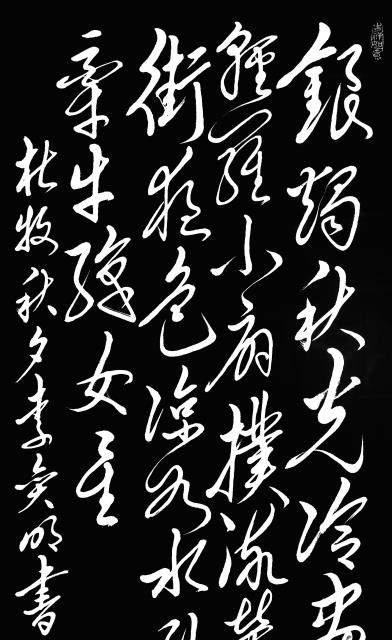 銀燭秋光冷畫
輕羅小扇撲流螢
街夜色涼如水
牽牛織女星
杜牧秋夕李明書